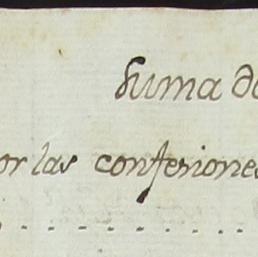 Suma de
or las confesiones